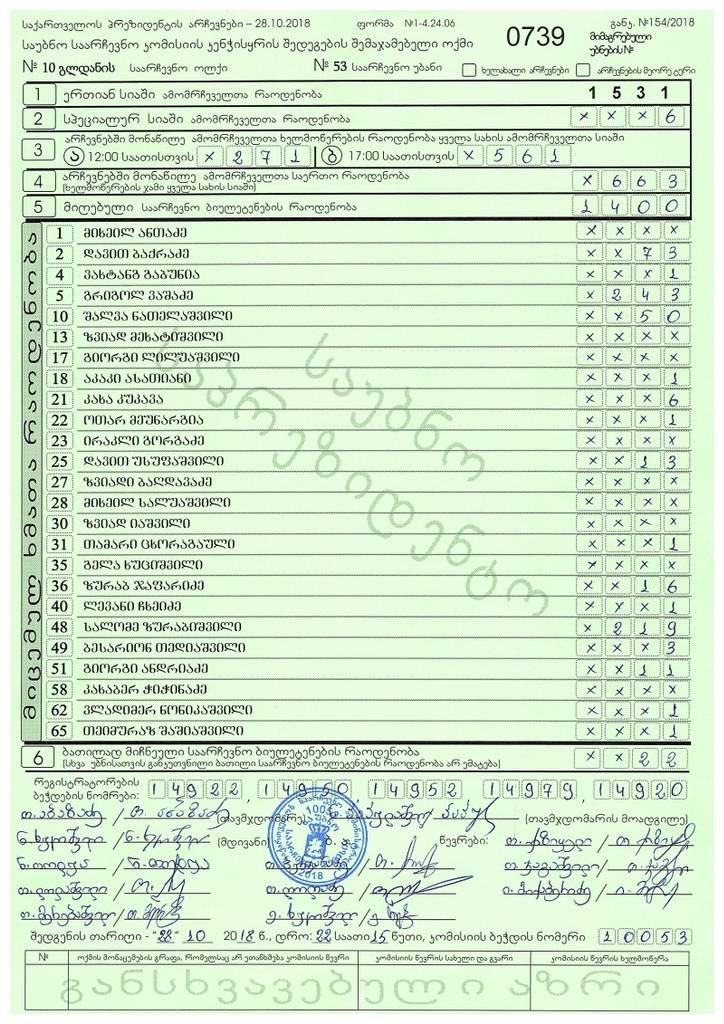 საქართველოს პრეზიდენტის არჩევნები – 28.10.2018 ფორმა №1-4.24.06 განკ. №154/2018
საუბნო საარჩევნო კომისიის კენჭისყრის შედეგების შემაჯამებელი ოქმი 0739 მიმაგრებული უბნების №
№ 10 გლდანის საარჩევნო ოლქი № 53 საარჩევნო უბანი ხელახალი არჩევნები არჩევნების მეორე ტური
1 ერთიან სიაში ამომრჩეველთა რაოდენობა 1 5 3 1
2 სპეციალურ სიაში ამომრჩეველთა რაოდენობა × × × 6
არჩევნებში მონაწილე ამომრჩეველთა ხელმოწერების რაოდენობა ყველა სახის ამომრჩეველთა სიაში
3 ა 12:00 საათისთვის × 2 7 1 ბ 17:00 საათისთვის × 5 6 1
4 არჩევნებში მონაწილე ამომრჩეველთა საერთო რაოდენობა × 6 6 3
(ხელმოწერების ჯამი ყველა სახის სიაში)
5 მიღებული საარჩევნო ბიულეტენების რაოდენობა 1 4 0 0
მიცემულ ხმათა რაოდენობა
1 მიხეილ ანთაძე × × × ×
2 დავით ბაქრაძე × × 7 3
4 ვახტანგ გაბუნია × × × 1
5 გრიგოლ ვაშაძე × 2 4 3
10 შალვა ნათელაშვილი × × 5 0
13 ზვიად მეხატიშვილი × × × ×
17 გიორგი ლილუაშვილი × × × ×
18 აკაკი ასათიანი × × × 1
21 კახა კუკავა × × × 6
22 ოთარ მეუნარგია × × × 1
23 ირაკლი გორგაძე × × × ×
25 დავით უსუფაშვილი × × 1 3
27 ზვიადი ბაღდავაძე × × × ×
28 მიხეილ სალუაშვილი × × × ×
30 ზვიად იაშვილი × × × ×
31 თამარი ცხორაგაული × × × 1
35 გელა ხუციშვილი × × × ×
36 ზურაბ ჯაფარიძე × × 1 6
40 ლევანი ჩხეიძე × × × 1
48 სალომე ზურაბიშვილი × 2 1 9
49 ბესარიონ თედიაშვილი × × × 3
51 გიორგი ანდრიაძე × × 1 1
58 კახაბერ ჭიჭინაძე × × × ×
62 ვლადიმერ ნონიკაშვილი × × × 1
65 თეიმურაზ შაშიაშვილი × × × 1
საუბნო
საპრეზიდენტო
6 ბათილად მიჩნეული საარჩევნო ბიულეტენების რაოდენობა × × 2 2
(სხვა უბნისათვის განკუთვნილი ბათილი საარჩევნო ბიულეტენების რაოდენობა არ ემატება)
რეგისტრატორების
ბეჭდების ნომრები: 1 4 9 2 2, 1 4 9 5 0 1 4 9 5 2 1 4 9 7 9, 1 4 9 2 0
(თავმჯდომარე) (თავმჯდომარის მოადგილე)
(მდივანი) წევრები:
შედგენის თარიღი - "28" 10 2018 წ., დრო: 22 საათი 15 წუთი, კომისიის ბეჭდის ნომერი 1 0 0 5 3
№ ოქმის მონაცემების გრაფა, რომელსაც არ ეთანხმება კომისიის წევრი კომისიის წევრის სახელი და გვარი კომისიის წევრის ხელმოწერა
განსხვავებული აზრი